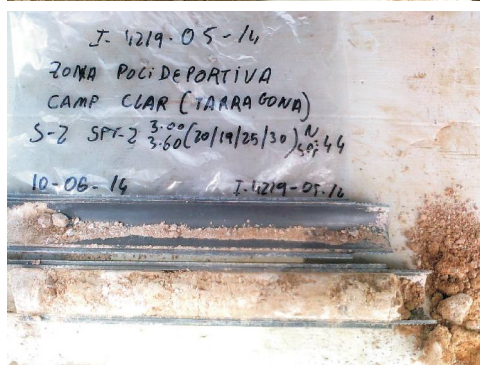 I-4219-05-14
ZONA POLIDEPORTIVA
CAMP CLAR (TARRAGONA)
S-2 SPT-2 3.00 3.60 (20/19/25/30) N SPT=44
10-06-14 I-4219-05-14